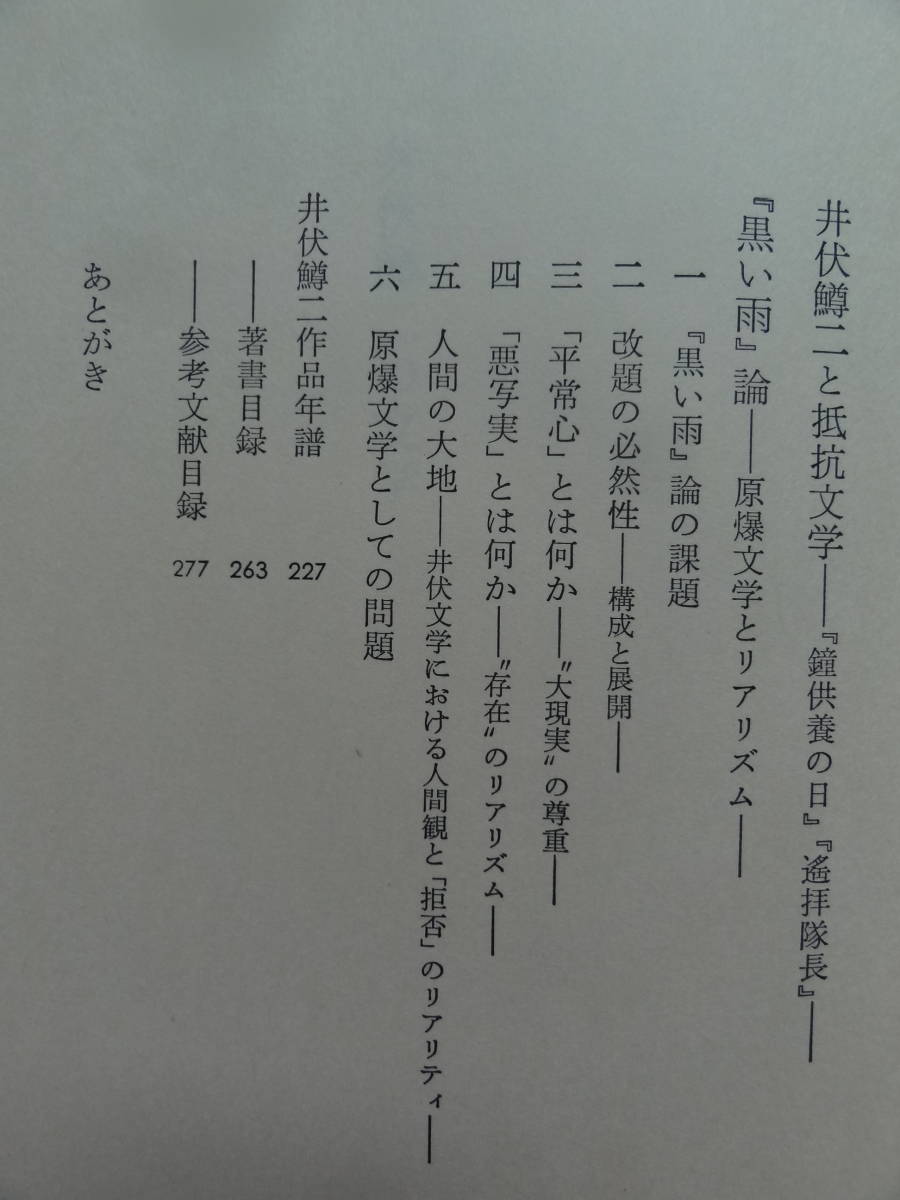 井伏鱒二と抵抗文学――『鐘供養の日』『遙拝隊長』――
『黒い雨』論――原爆文学とリアリズム――
一　『黒い雨』論の課題
二　改題の必然性――構成と展開――
三　「平常心」とは何か――〝大現実〟の尊重――
四　「悪写実」とは何か――〝存在〟のリアリズム――
五　人間の大地――井伏文学における人間観と「拒否」のリアリティ――
六　原爆文学としての問題
井伏鱒二作品年譜　227
――著書目録　263
――参考文献目録　277
あとがき